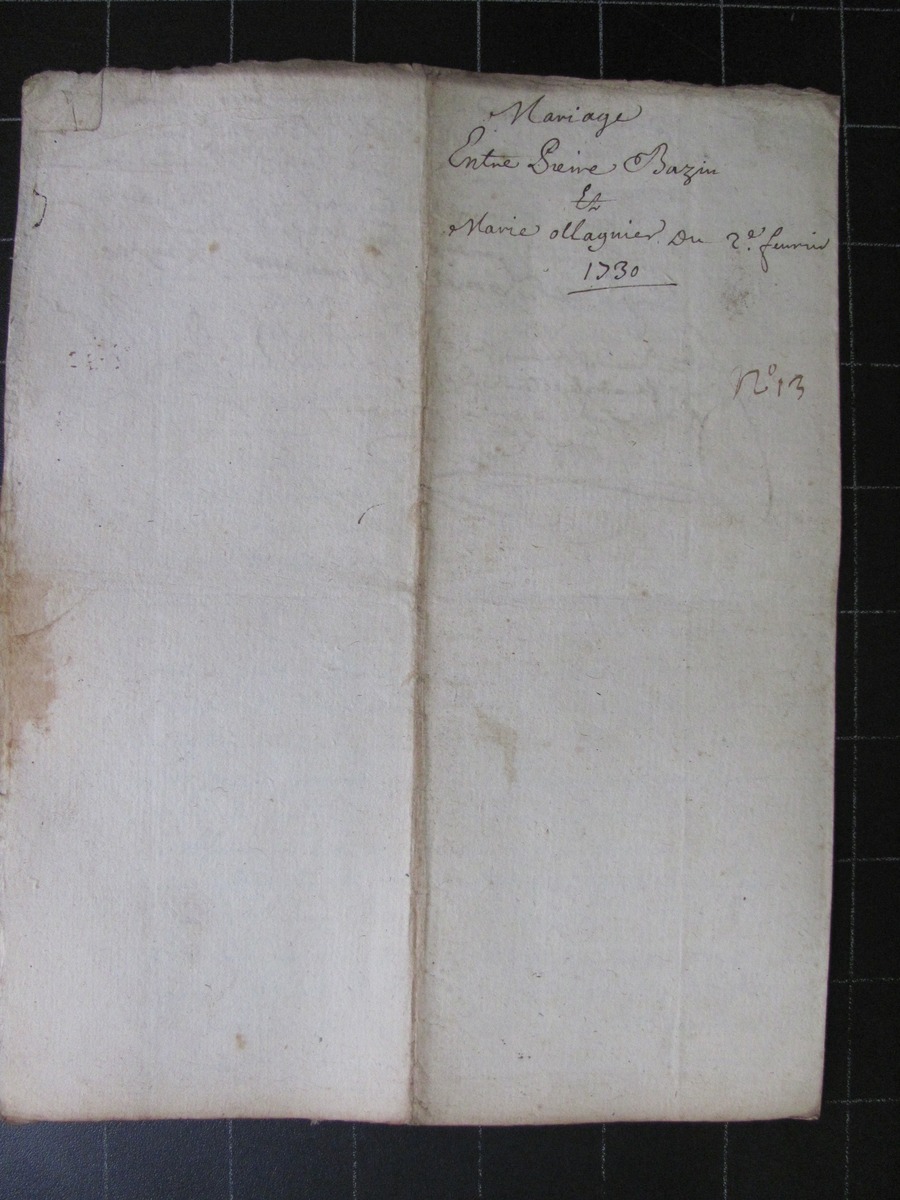 Mariage
Entre Pierre Bazin
Et
Marie ollagnier Du 2e. feurier
1730
No 13